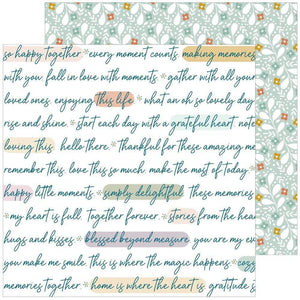 so happy together * every moment counts. making memories
with you. fall in love with moments. * gather with all your
loved ones. enjoying this life. * what an oh so lovely day
rise and shine. * start each day with a grateful heart. note
loving this. hello there. * thankful for these moments.
remember this. love this so much. make the most of today.
happy little moments. * simply delightful. these memories
* my heart is full. together forever. * stories from the heart
hugs and kisses. * blessed beyond measure. you are my ev
you make me smile. this is where the magic happens. * cozy
together. * home is where the heart is. gratitude s